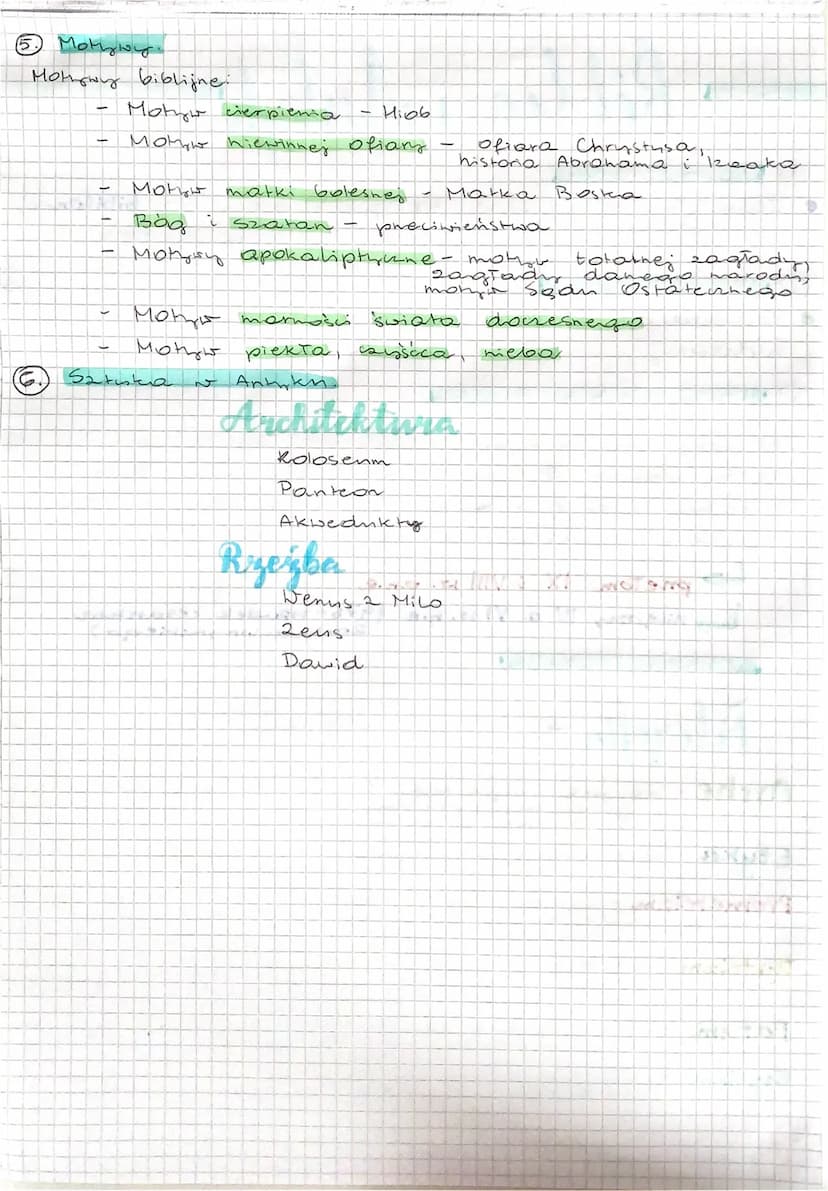 5. Motywy.
Motywy biblijne:
- Motyw cierpienia - Hiob
- Motyw niewinnej ofiary - ofiara Chrystusa,
historia Abrahama i Izaaka
- Motyw matki bolesnej - Matka Boska
- Bóg i szatan - przeciwieństwa
- Motywy apokaliptyczne - motyw totalnej zagłady,
zagłady danego narodu,
motyw Sądu Ostatecznego
- Motyw marności świata doczesnego
- Motyw piekła, czyśćca, nieba
6. Sztuka w Antyku.
Architektura
Koloseum
Panteon
Akwedukty
Rzeźba
Wenus z Milo
Zeus
Dawid